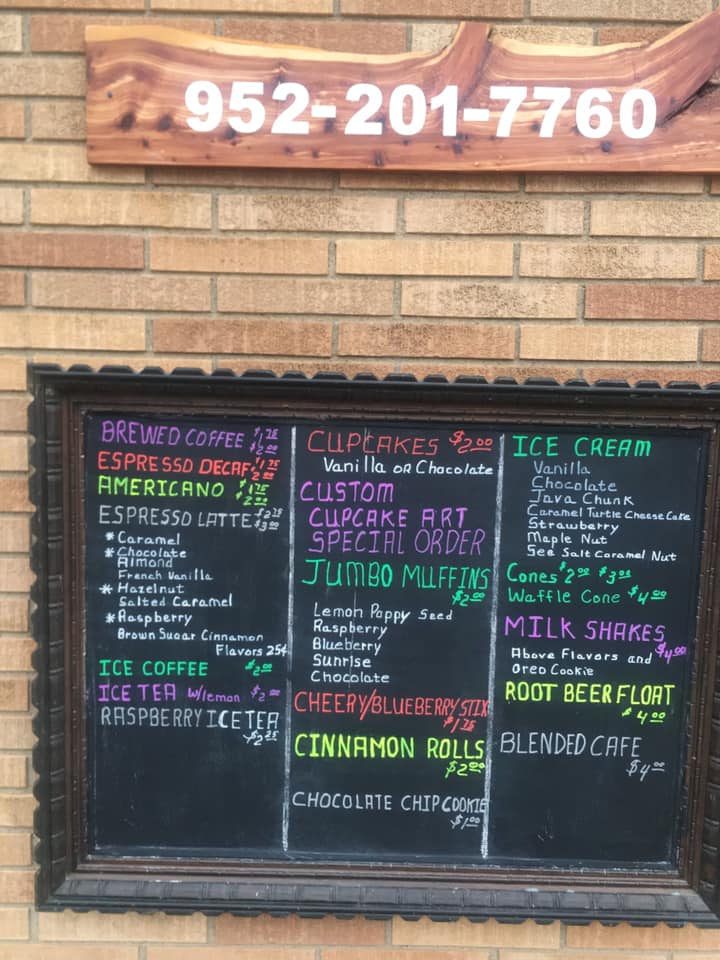 952-201-7760
BREWED COFFEE $1.75
$2.00
ESPRESSO DECAF $1.75
2.00
AMERICANO $1.75
$2.00
ESPRESSO LATTE $2.75
$3.00
* Caramel
* Chocolate
Almond
French Vanilla
* Hazelnut
Salted Caramel
* Raspberry
Brown Sugar Cinnamon
Flavors 25¢
ICE COFFEE $2.00
ICE TEA w/lemon $2.00
RASPBERRY ICE TEA
$2.25
CUPCAKES $2.00
Vanilla OR Chocolate
CUSTOM
CUPCAKE ART
SPECIAL ORDER
JUMBO MUFFINS
$2.00
Lemon Poppy Seed
Raspberry
Blueberry
Sunrise
Chocolate
CHEERY/BLUEBERRY STIX
$1.75
CINNAMON ROLLS
$2.00
CHOCOLATE CHIP COOKIE
$1.00
ICE CREAM
Vanilla
Chocolate
Java Chunk
Caramel Turtle Cheese Cake
Strawberry
Maple Nut
See Salt Caramel Nut
Cones $2.00 $3.00
Waffle Cone $4.00
MILK SHAKES
$4.00
Above Flavors and
Oreo Cookie
ROOT BEER FLOAT
$4.00
BLENDED CAFE
$4.00